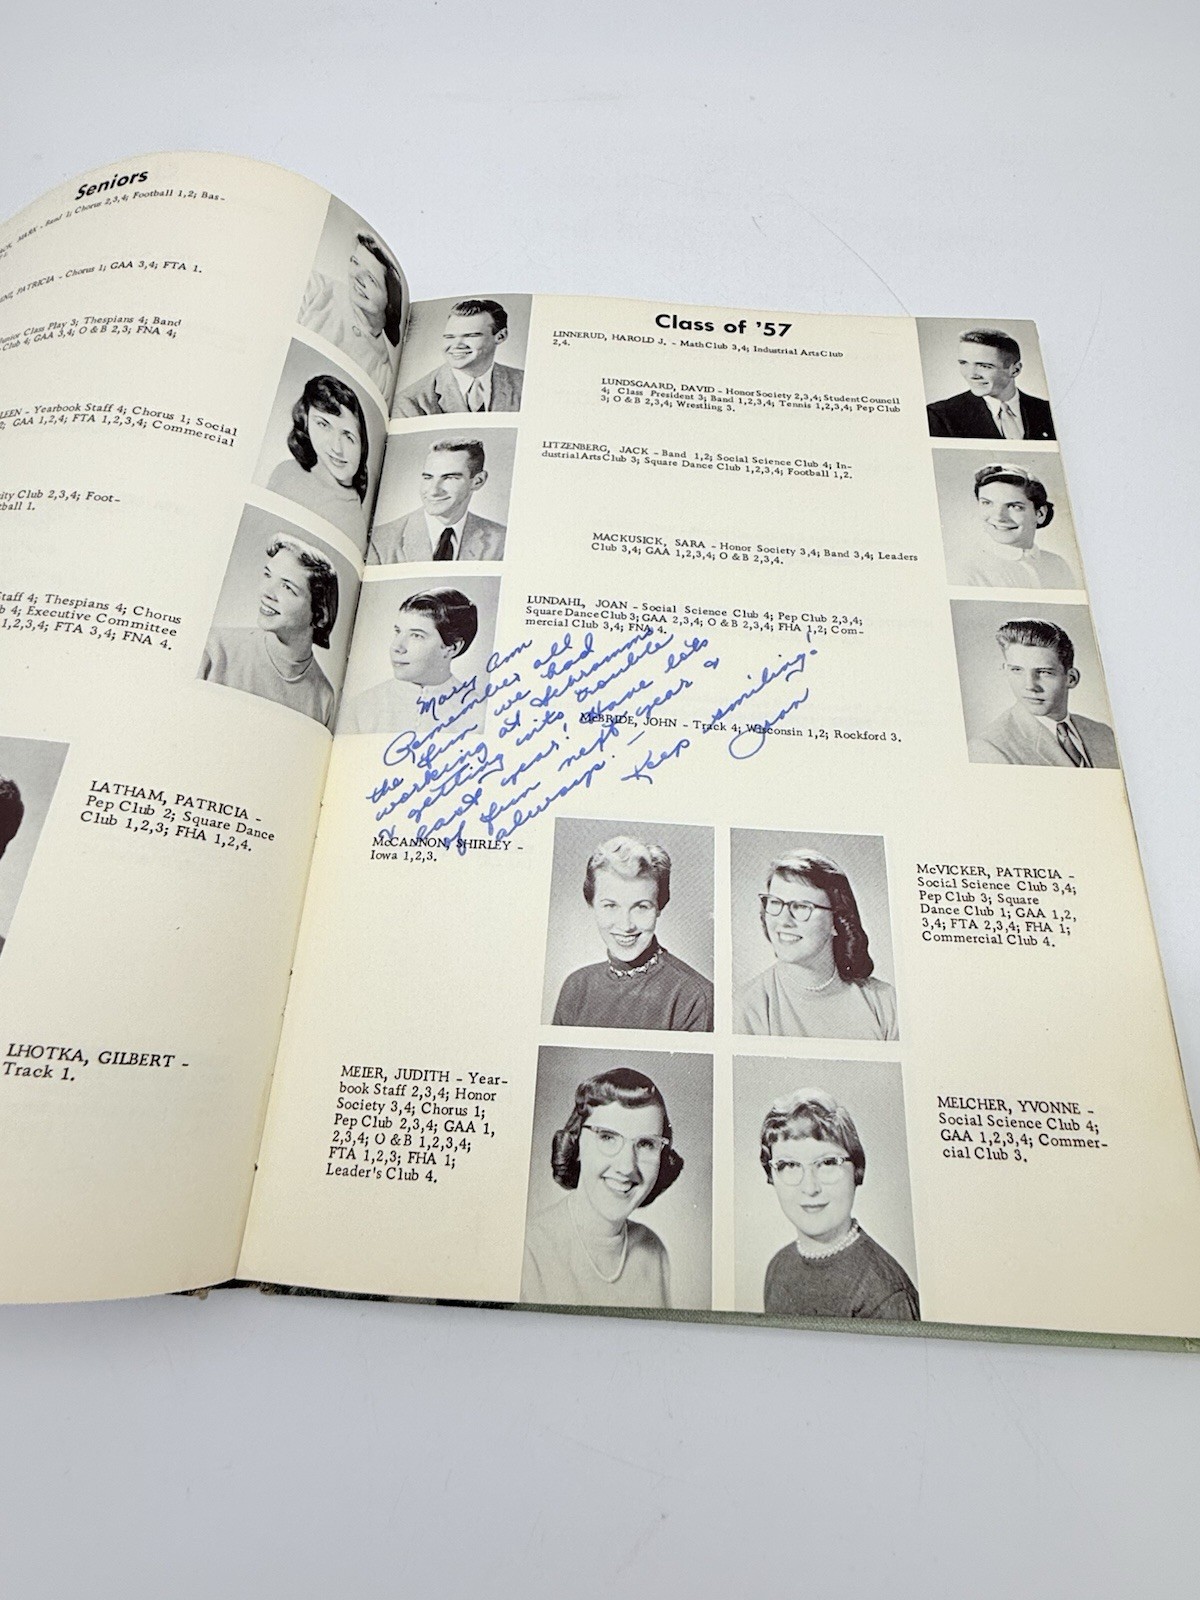 Seniors
MARK - Band 1; Chorus 2,3,4; Football 1,2; Bas-
PATRICIA - Chorus 1; GAA 3,4; FTA 1.
Junior Class Play 3; Thespians 4; Band
Club 4; GAA 3,4; O & B 2,3; FNA 4;
LEEN - Yearbook Staff 4; Chorus 1; Social
GAA 1,2,4; FTA 1,2,3,4; Commercial
ity Club 2,3,4; Foot-
ball 1.
taff 4; Thespians 4; Chorus
b 4; Executive Committee
1,2,3,4; FTA 3,4; FNA 4.
LATHAM, PATRICIA -
Pep Club 2; Square Dance
Club 1,2,3; FHA 1,2,4.
LHOTKA, GILBERT -
Track 1.
Class of '57
LINNERUD, HAROLD J. - Math Club 3,4; Industrial Arts Club
2,4.
LUNDSGAARD, DAVID - Honor Society 2,3,4; Student Council
4; Class President 3; Band 1,2,3,4; Tennis 1,2,3,4; Pep Club
3; O & B 2,3,4; Wrestling 3.
LITZENBERG, JACK - Band 1,2; Social Science Club 4; In-
dustrial Arts Club 3; Square Dance Club 1,2,3,4; Football 1,2.
MACKUSICK, SARA - Honor Society 3,4; Band 3,4; Leaders
Club 3,4; GAA 1,2,3,4; O & B 2,3,4.
LUNDAHL, JOAN - Social Science Club 4; Pep Club 2,3,4;
Square Dance Club 3; GAA 2,3,4; O & B 2,3,4; FHA 1,2; Com-
mercial Club 3,4; FNA 4.
Mary Ann
Remember all
the fun we had
working at Schramms
& getting into trouble
last year! Have lots
of fun next year &
always! -
Keep smiling!
Joan
McBRIDE, JOHN - Track 4; Wisconsin 1,2; Rockford 3.
McCANNON, SHIRLEY -
Iowa 1,2,3.
McVICKER, PATRICIA -
Social Science Club 3,4;
Pep Club 3; Square
Dance Club 1; GAA 1,2,
3,4; FTA 2,3,4; FHA 1;
Commercial Club 4.
MEIER, JUDITH - Year-
book Staff 2,3,4; Honor
Society 3,4; Chorus 1;
Pep Club 2,3,4; GAA 1,
2,3,4; O & B 1,2,3,4;
FTA 1,2,3; FHA 1;
Leader's Club 4.
MELCHER, YVONNE -
Social Science Club 4;
GAA 1,2,3,4; Commer-
cial Club 3.